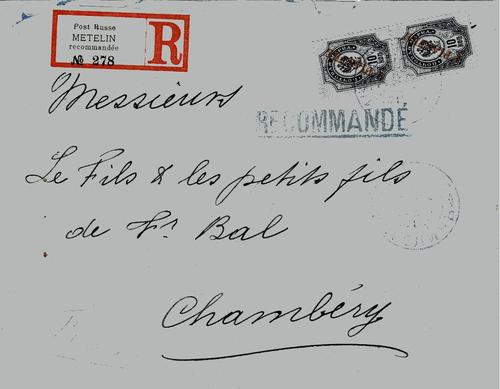 Post Russe
METELIN
recommandée
№ 278
R
10
10
Messieurs
RECOMMANDÉ
Le Fils & les petits fils
de Fr. Bal
Chambéry